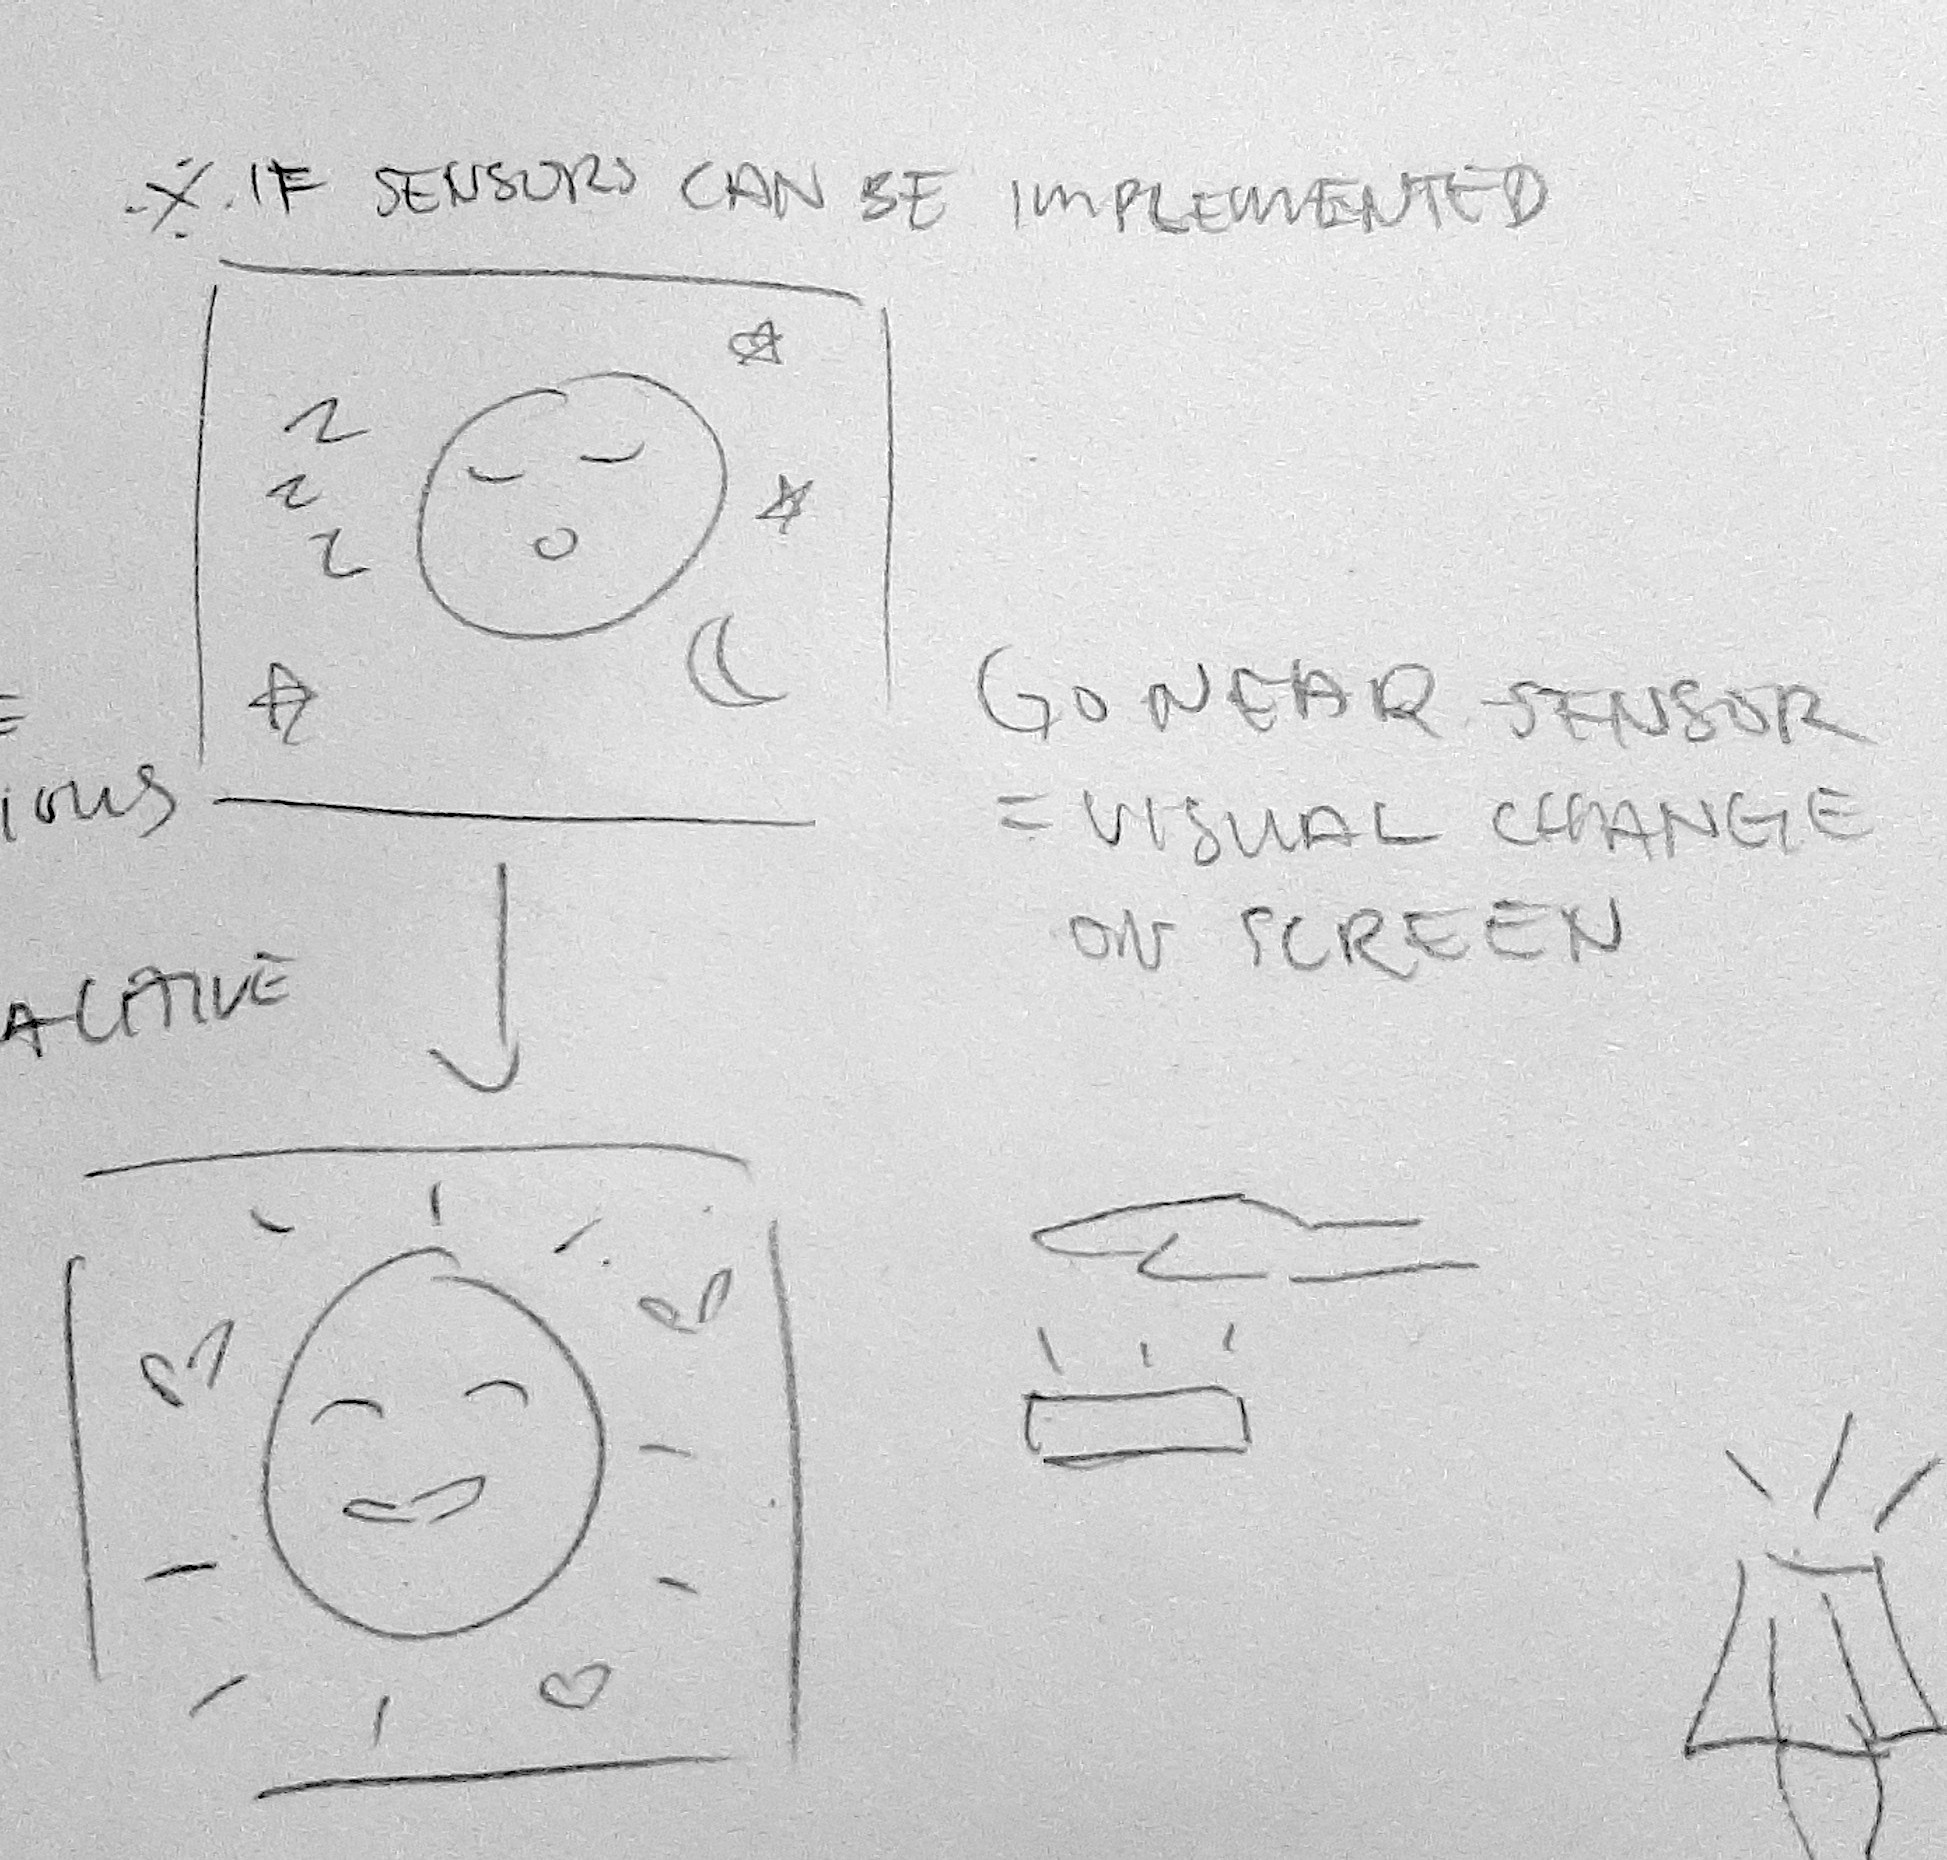 ※ IF SENSORS CAN BE IMPLEMENTED
z
z
z
GO NEAR SENSOR
= VISUAL CHANGE
ON SCREEN
=